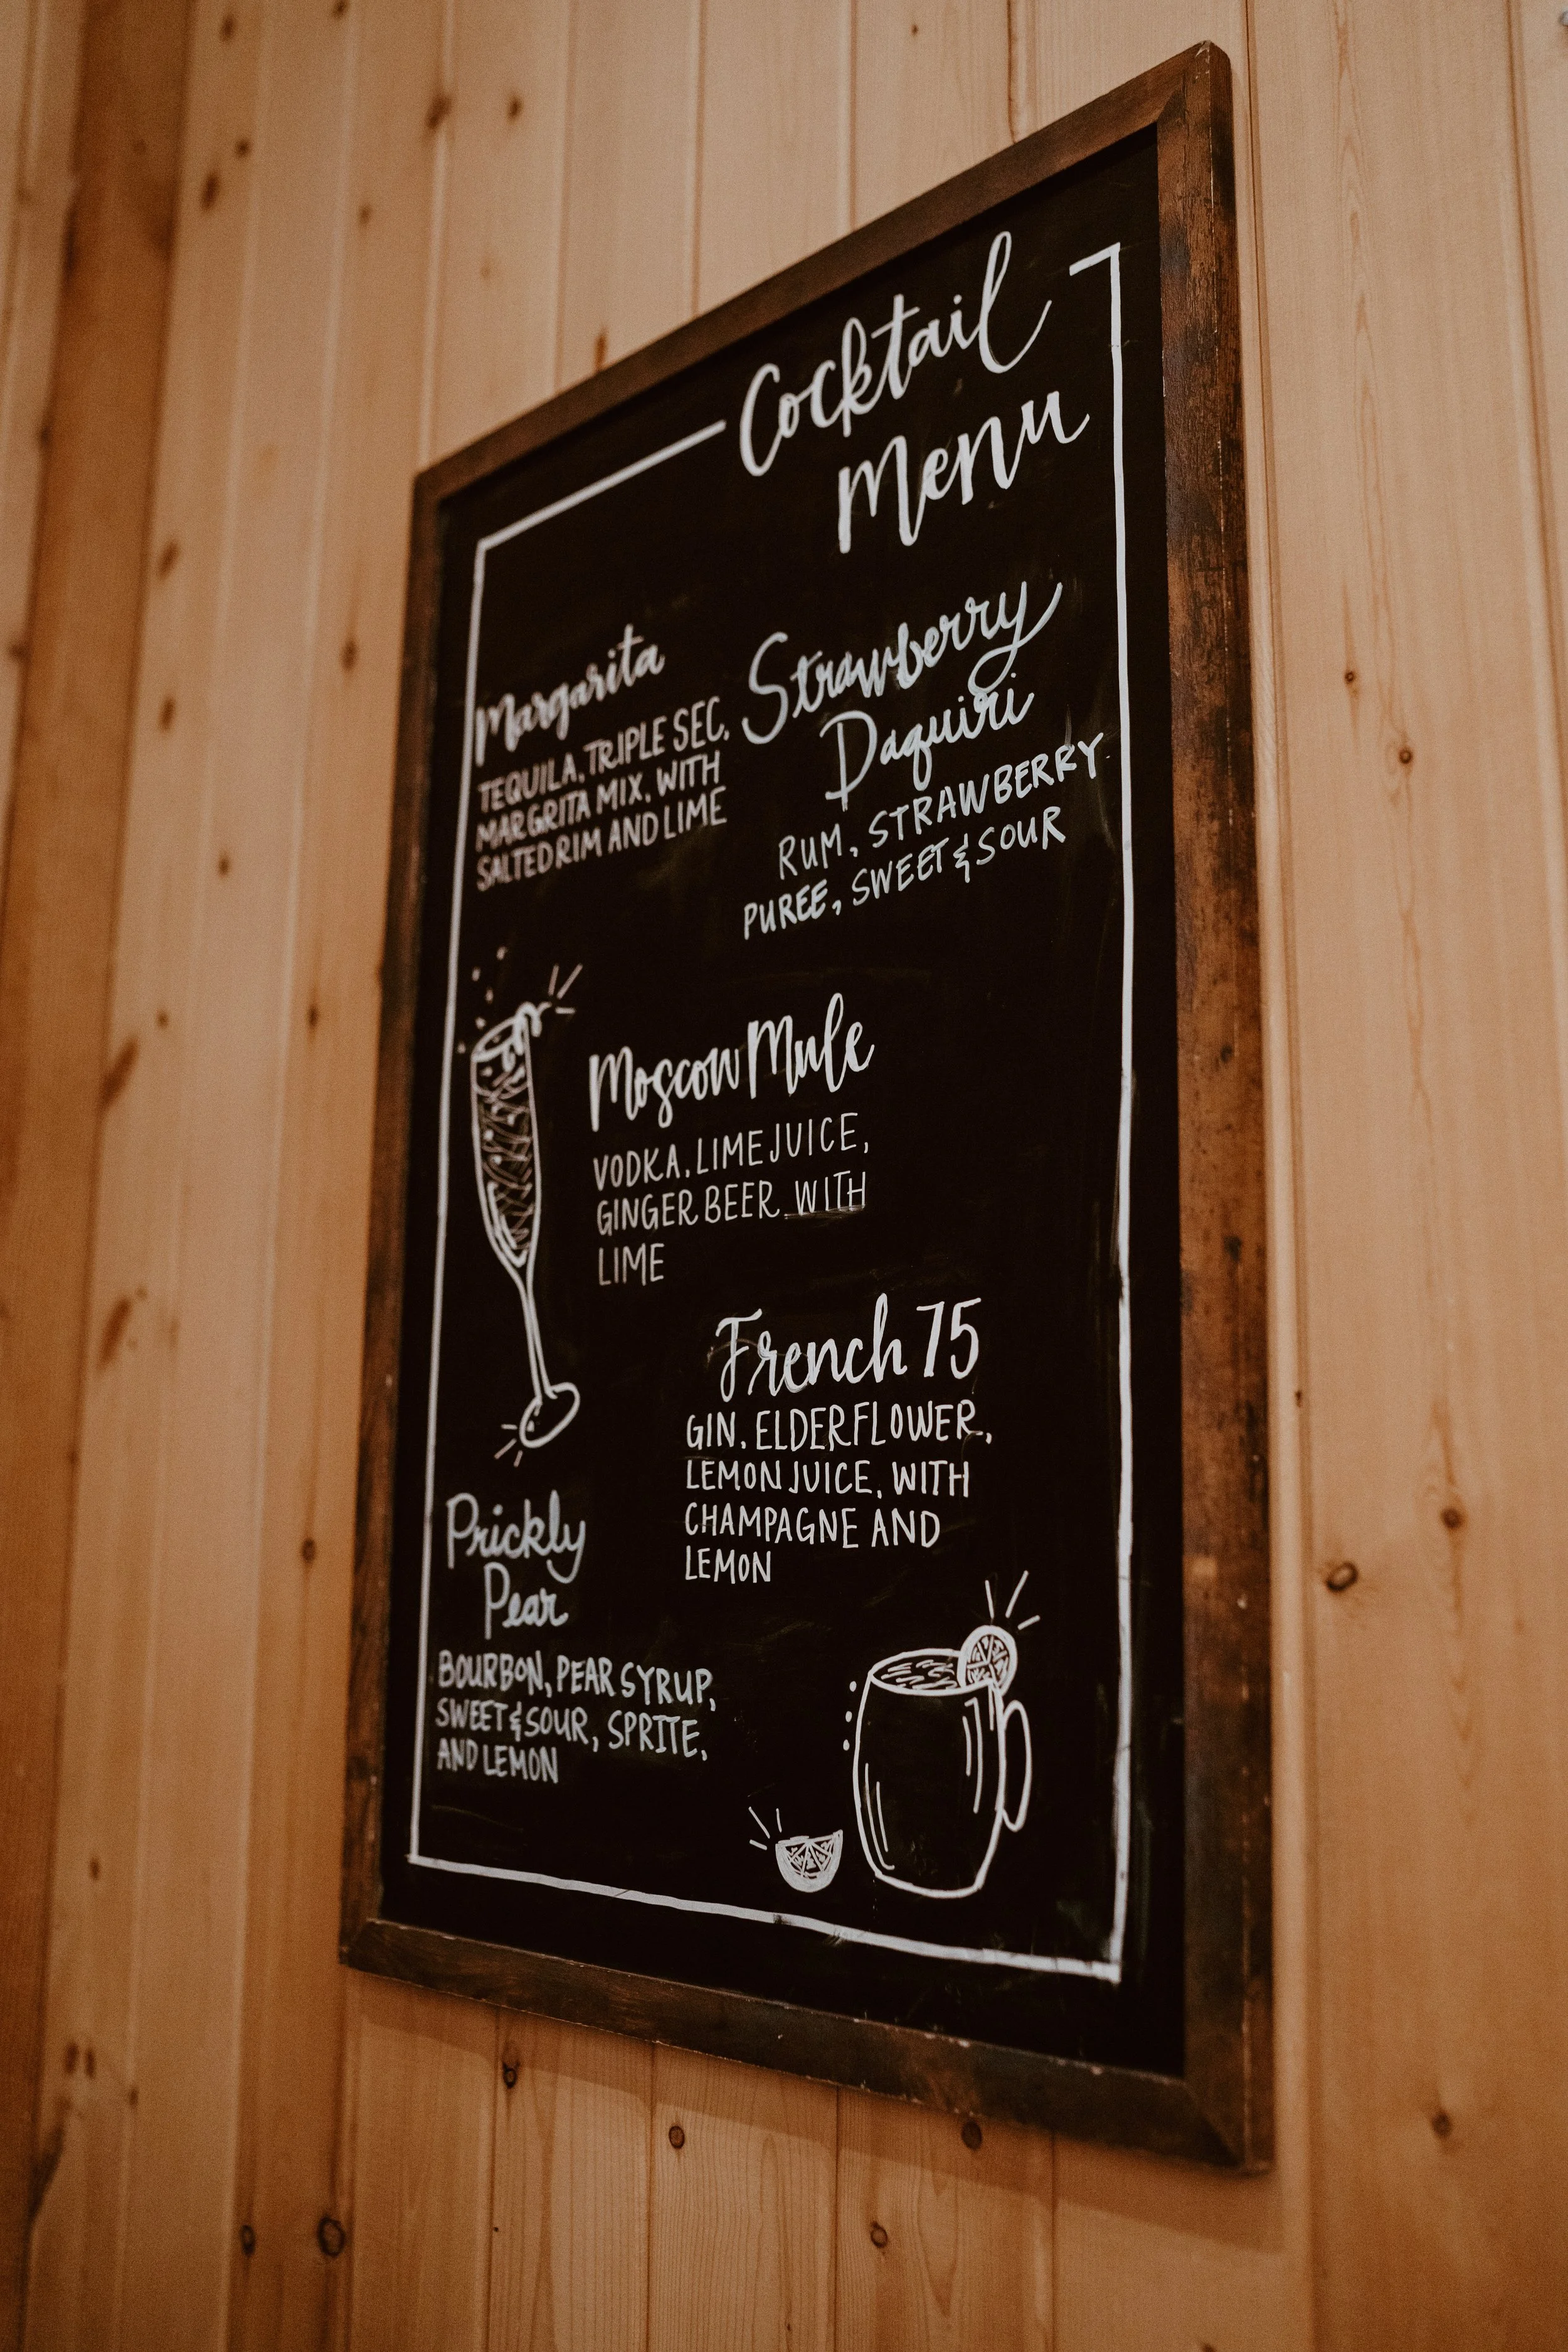 Cocktail
Menu
Margarita
TEQUILA, TRIPLE SEC,
MARGRITA MIX, WITH
SALTED RIM AND LIME
Strawberry
Daquiri
RUM, STRAWBERRY
PUREE, SWEET & SOUR
Moscow Mule
VODKA, LIME JUICE,
GINGER BEER WITH
LIME
French 75
GIN, ELDERFLOWER,
LEMON JUICE, WITH
CHAMPAGNE AND
LEMON
Prickly
Pear
BOURBON, PEAR SYRUP,
SWEET & SOUR, SPRITE,
AND LEMON